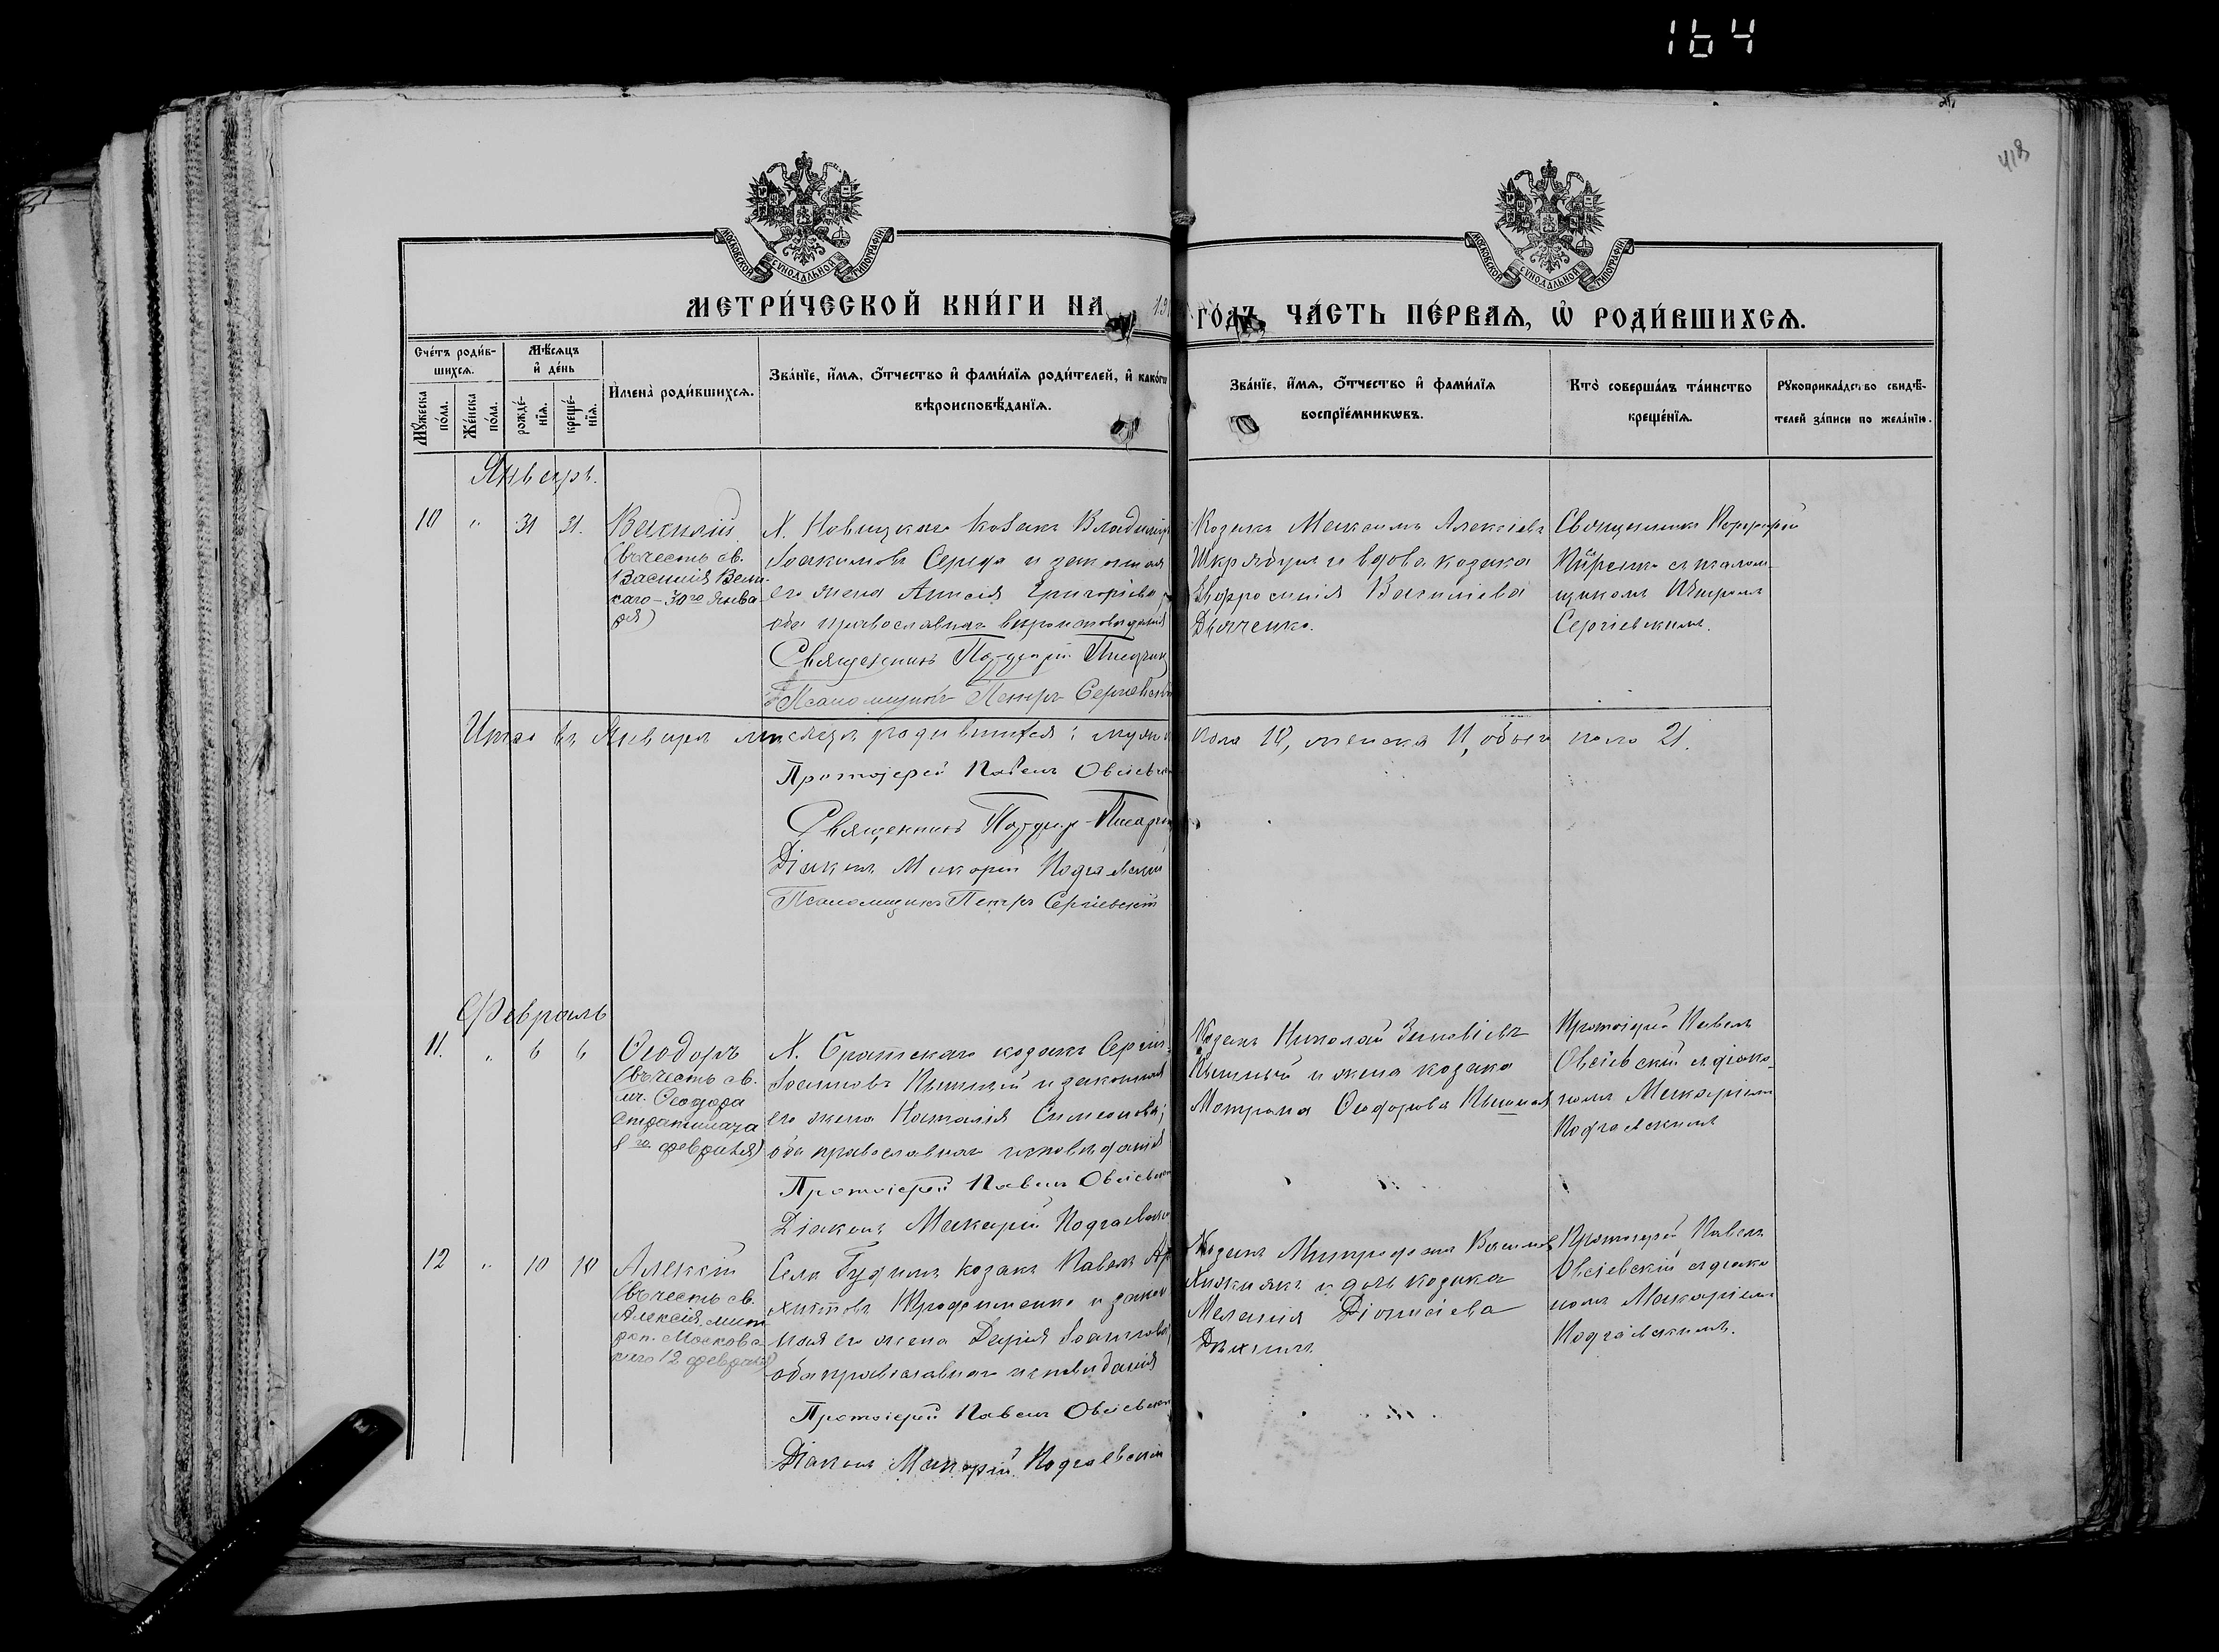 164
418
МОСКОВСКОЙ СУНОДАЛЬНОЙ ТИПОГРАФІИ
МОСКОВСКОЙ СУНОДАЛЬНОЙ ТИПОГРАФІИ
МЕТРИ́ЧЕСКОЙ КНИ́ГИ НА 19
ГО́ДЪ, ЧА́СТЬ ПЕ́РВАѦ, Ѡ҆ РОДИ́ВШИХСѦ.
Сче́тъ роди́в-
шихсѧ.
Мꙋ́жеска по́ла.
Же́нска по́ла.
Мѣ́сѧцъ
и҆ де́нь
рожде́-
нїѧ.
креще́-
нїѧ.
И҆мена̀ роди́вшихсѧ.
Зва́нїе, и҆́мѧ, ѻ҆́тчество и҆ фами́лїѧ роди́телей, и҆ како́гѡ
вѣроисповѣ́данїѧ.
Зва́нїе, и҆́мѧ, ѻ҆́тчество и҆ фами́лїѧ
воспрїе́мникѡвъ.
Кто̀ соверша́лъ та́инство
креще́нїѧ.
Рꙋкоприкла́дство свидѣ́-
телей за́писи по жела́нїю.
Январь.
10 " 31 31. Василій
(въ честь св.
Василія Вели-
каго - 30го Янва-
ря)
Х. Новицкаго козакъ Владиміръ
Іоакимовъ Середа и законная
его жена Анисія Григоріева,
оба православнаго вероисповеданія
Священникъ
Псаломщикъ Петръ Сергіевскій
Козакъ Максимъ Алексіевъ
и вдова козака
Евфросинія Василіева
Дьяченко.
Священникъ Порфирій
съ псалом-
щикомъ Петромъ
Сергіевскимъ.
Итого въ Январе месяце родившихся: мужеска
пола 10, женска 11, обоего пола 21.
Протоіерей Павелъ Овсіевскій
Священникъ
Діаконъ Макарій Подгаевскій
Псаломщикъ Петръ Сергіевскій
Февраль
11. " 6 6 Ѳеодоръ
(въ честь св.
мч. Ѳеодора
Стратилата
8го февраля)
Х. Братскаго козакъ Сергій
Іоанновъ Пышный и законная
его жена Наталія Симеонова;
оба православнаго исповеданія
Протоіерей Павелъ Овсіевскій
Діаконъ Макарій Подгаевскій
Козакъ Николай Зиновіевъ
Пышный и жена козака
Матрона Ѳеодорова Пышная
Протоіерей Павелъ
Овсіевскій съ діако-
номъ Макаріемъ
Подгаевскимъ
12 " 10 10 Алексій
(въ честь св.
Алексія, мит-
роп. Московс-
каго 12 февраля)
Села козакъ Павелъ
Трофименко и закон
ная его жена Дарія Іоаннова;
оба православнаго исповеданія
Протоіерей Павелъ Овсіевскій
Діаконъ Макарій Подгаевскій
Козакъ Митрофанъ
Хижнякъ и дочь козака
Меланія Діонисіева
Протоіерей Павелъ
Овсіевскій съ діако
номъ Макаріемъ
Подгаевскимъ.